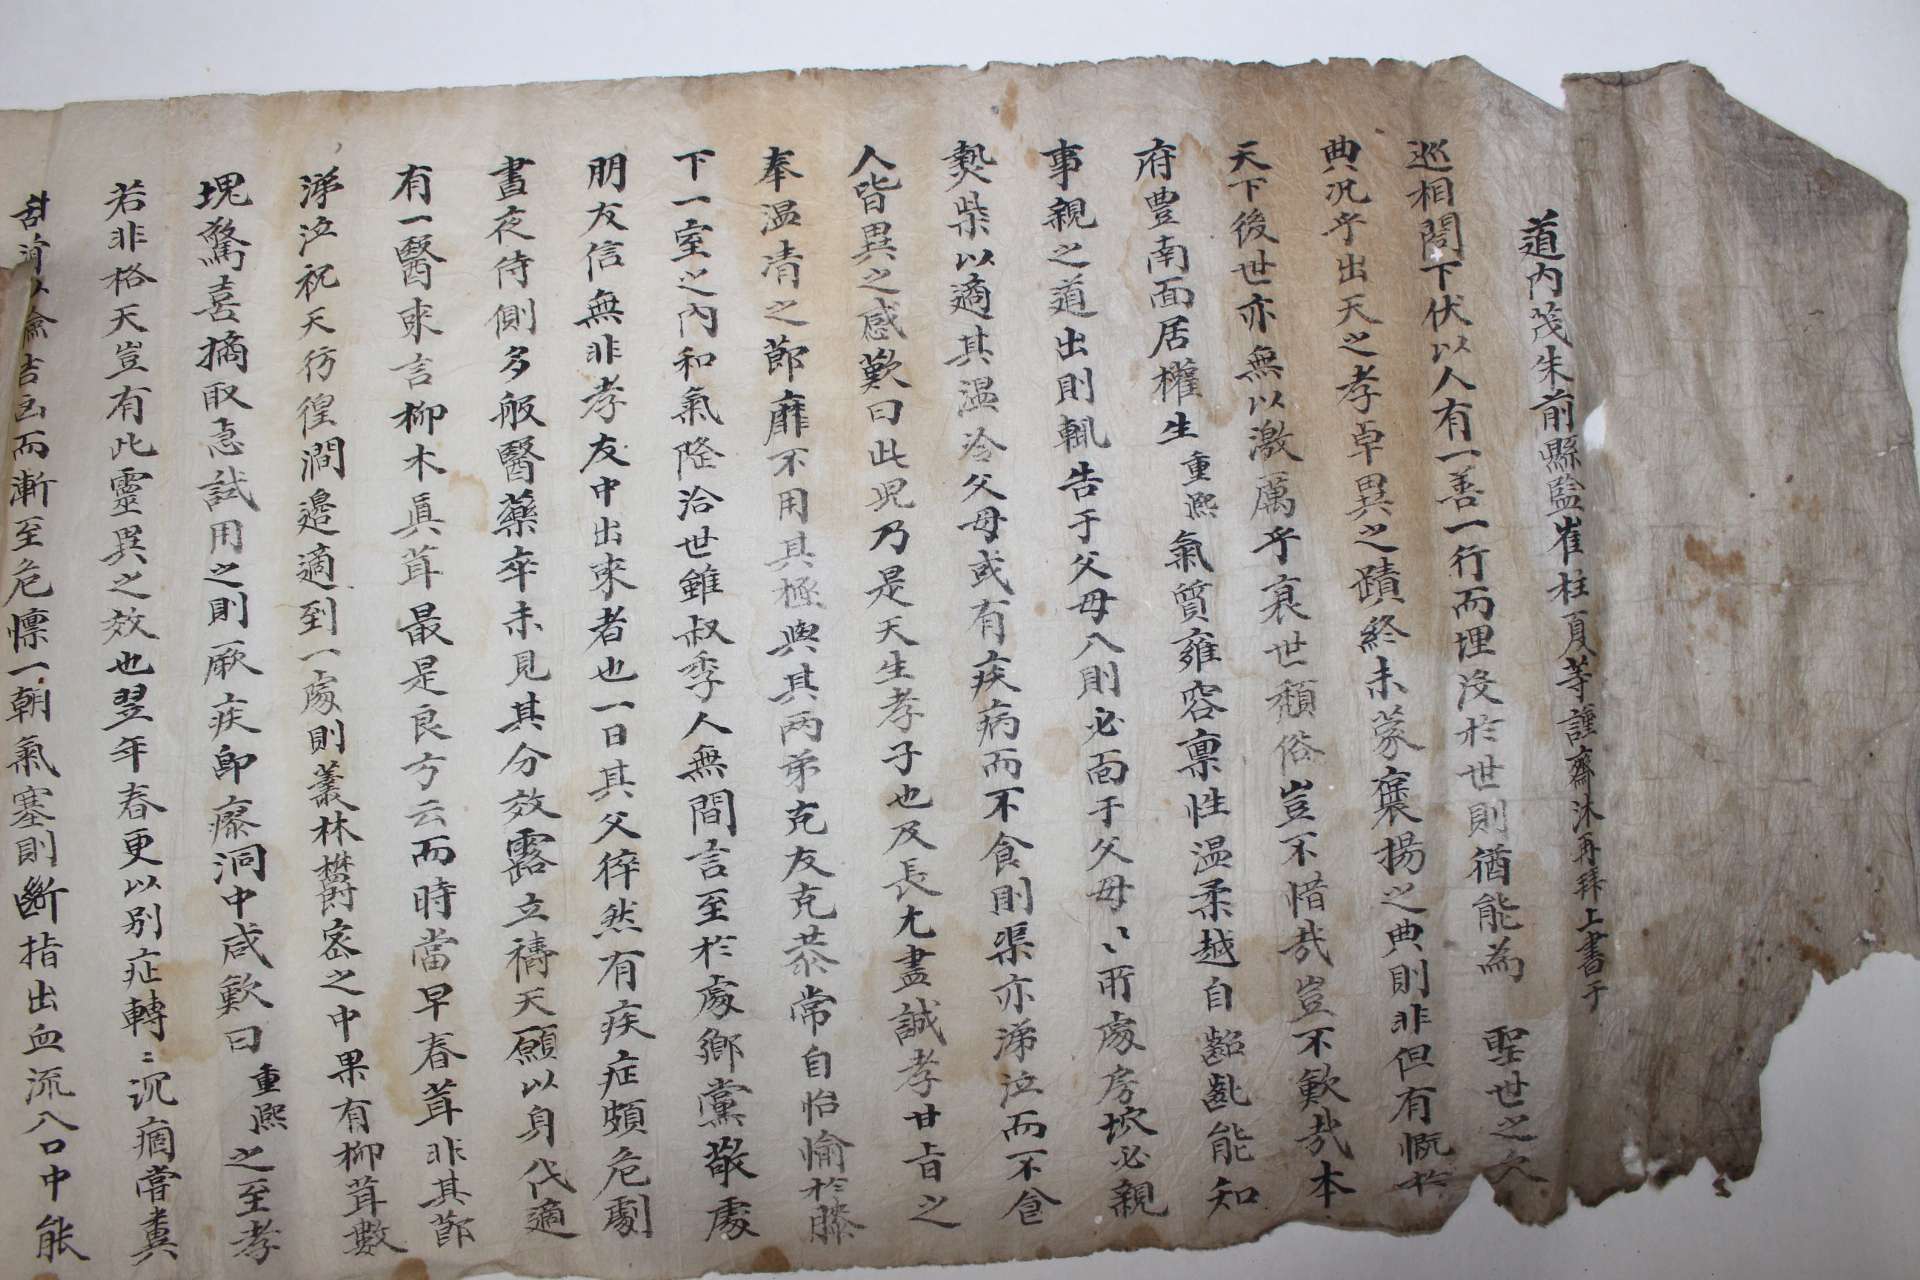 道內茂朱前縣監崔柱夏等謹齋沐再拜上書于
巡相閤下伏以人有一善一行而埋沒於世則猶能爲 聖世之欠
典況乎出天之孝卓異之蹟終未蒙襃揚之典則非但有慨於
天下後世亦無以激厲乎衰世頹俗豈不惜哉豈不歎哉本
府豊南面居權生重熙氣質雍容稟性溫柔越自齠齔能知
事親之道出則輒告于父母入則必面于父母〻所處房堗必親
爇柴以適其温冷父母或有疾病而不食則渠亦涕泣而不食
人皆異之感歎曰此児乃是天生孝子也及長尤盡誠孝甘旨之
奉温凊之節靡不用其極與其兩弟克友克恭常自怡愉於膝
下一室之內和氣隆洽世雖叔季人無間言至於處鄕黨敬處
朋友信無非孝友中出來者也一日其父猝然有疾症頗危劇
晝夜侍側多般醫藥卒未見其分效露立禱天願以身代適
有一醫來言柳木眞茸最是良方云而時當早春茸非其節
涕泣祝天彷徨澗邊適到一處則叢林欝密之中果有柳茸數
塊驚喜摘取急試用之則厥疾卽瘳洞中咸歎曰重熙之至孝
若非格天豈有此靈異之效也翌年春更以別症轉〻沉痼嘗糞
甜 以 吉凶而漸至危懍一朝氣塞則斷指出血流入口中能